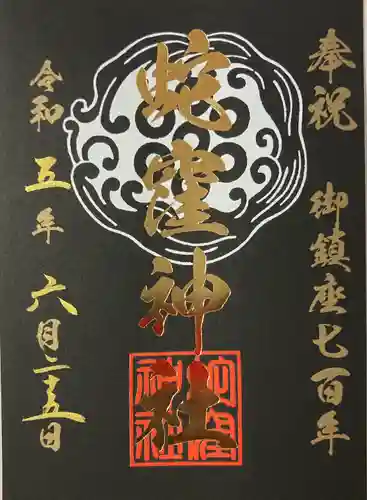 奉祝 御鎮座七百年
蛇窪神社
令和五年六月二十五日
蛇窪神社